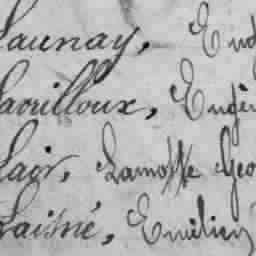 Launay, Eug
Laouilloux, Eugèn
Lair, Lamotte Geo
Laisné, Emilien